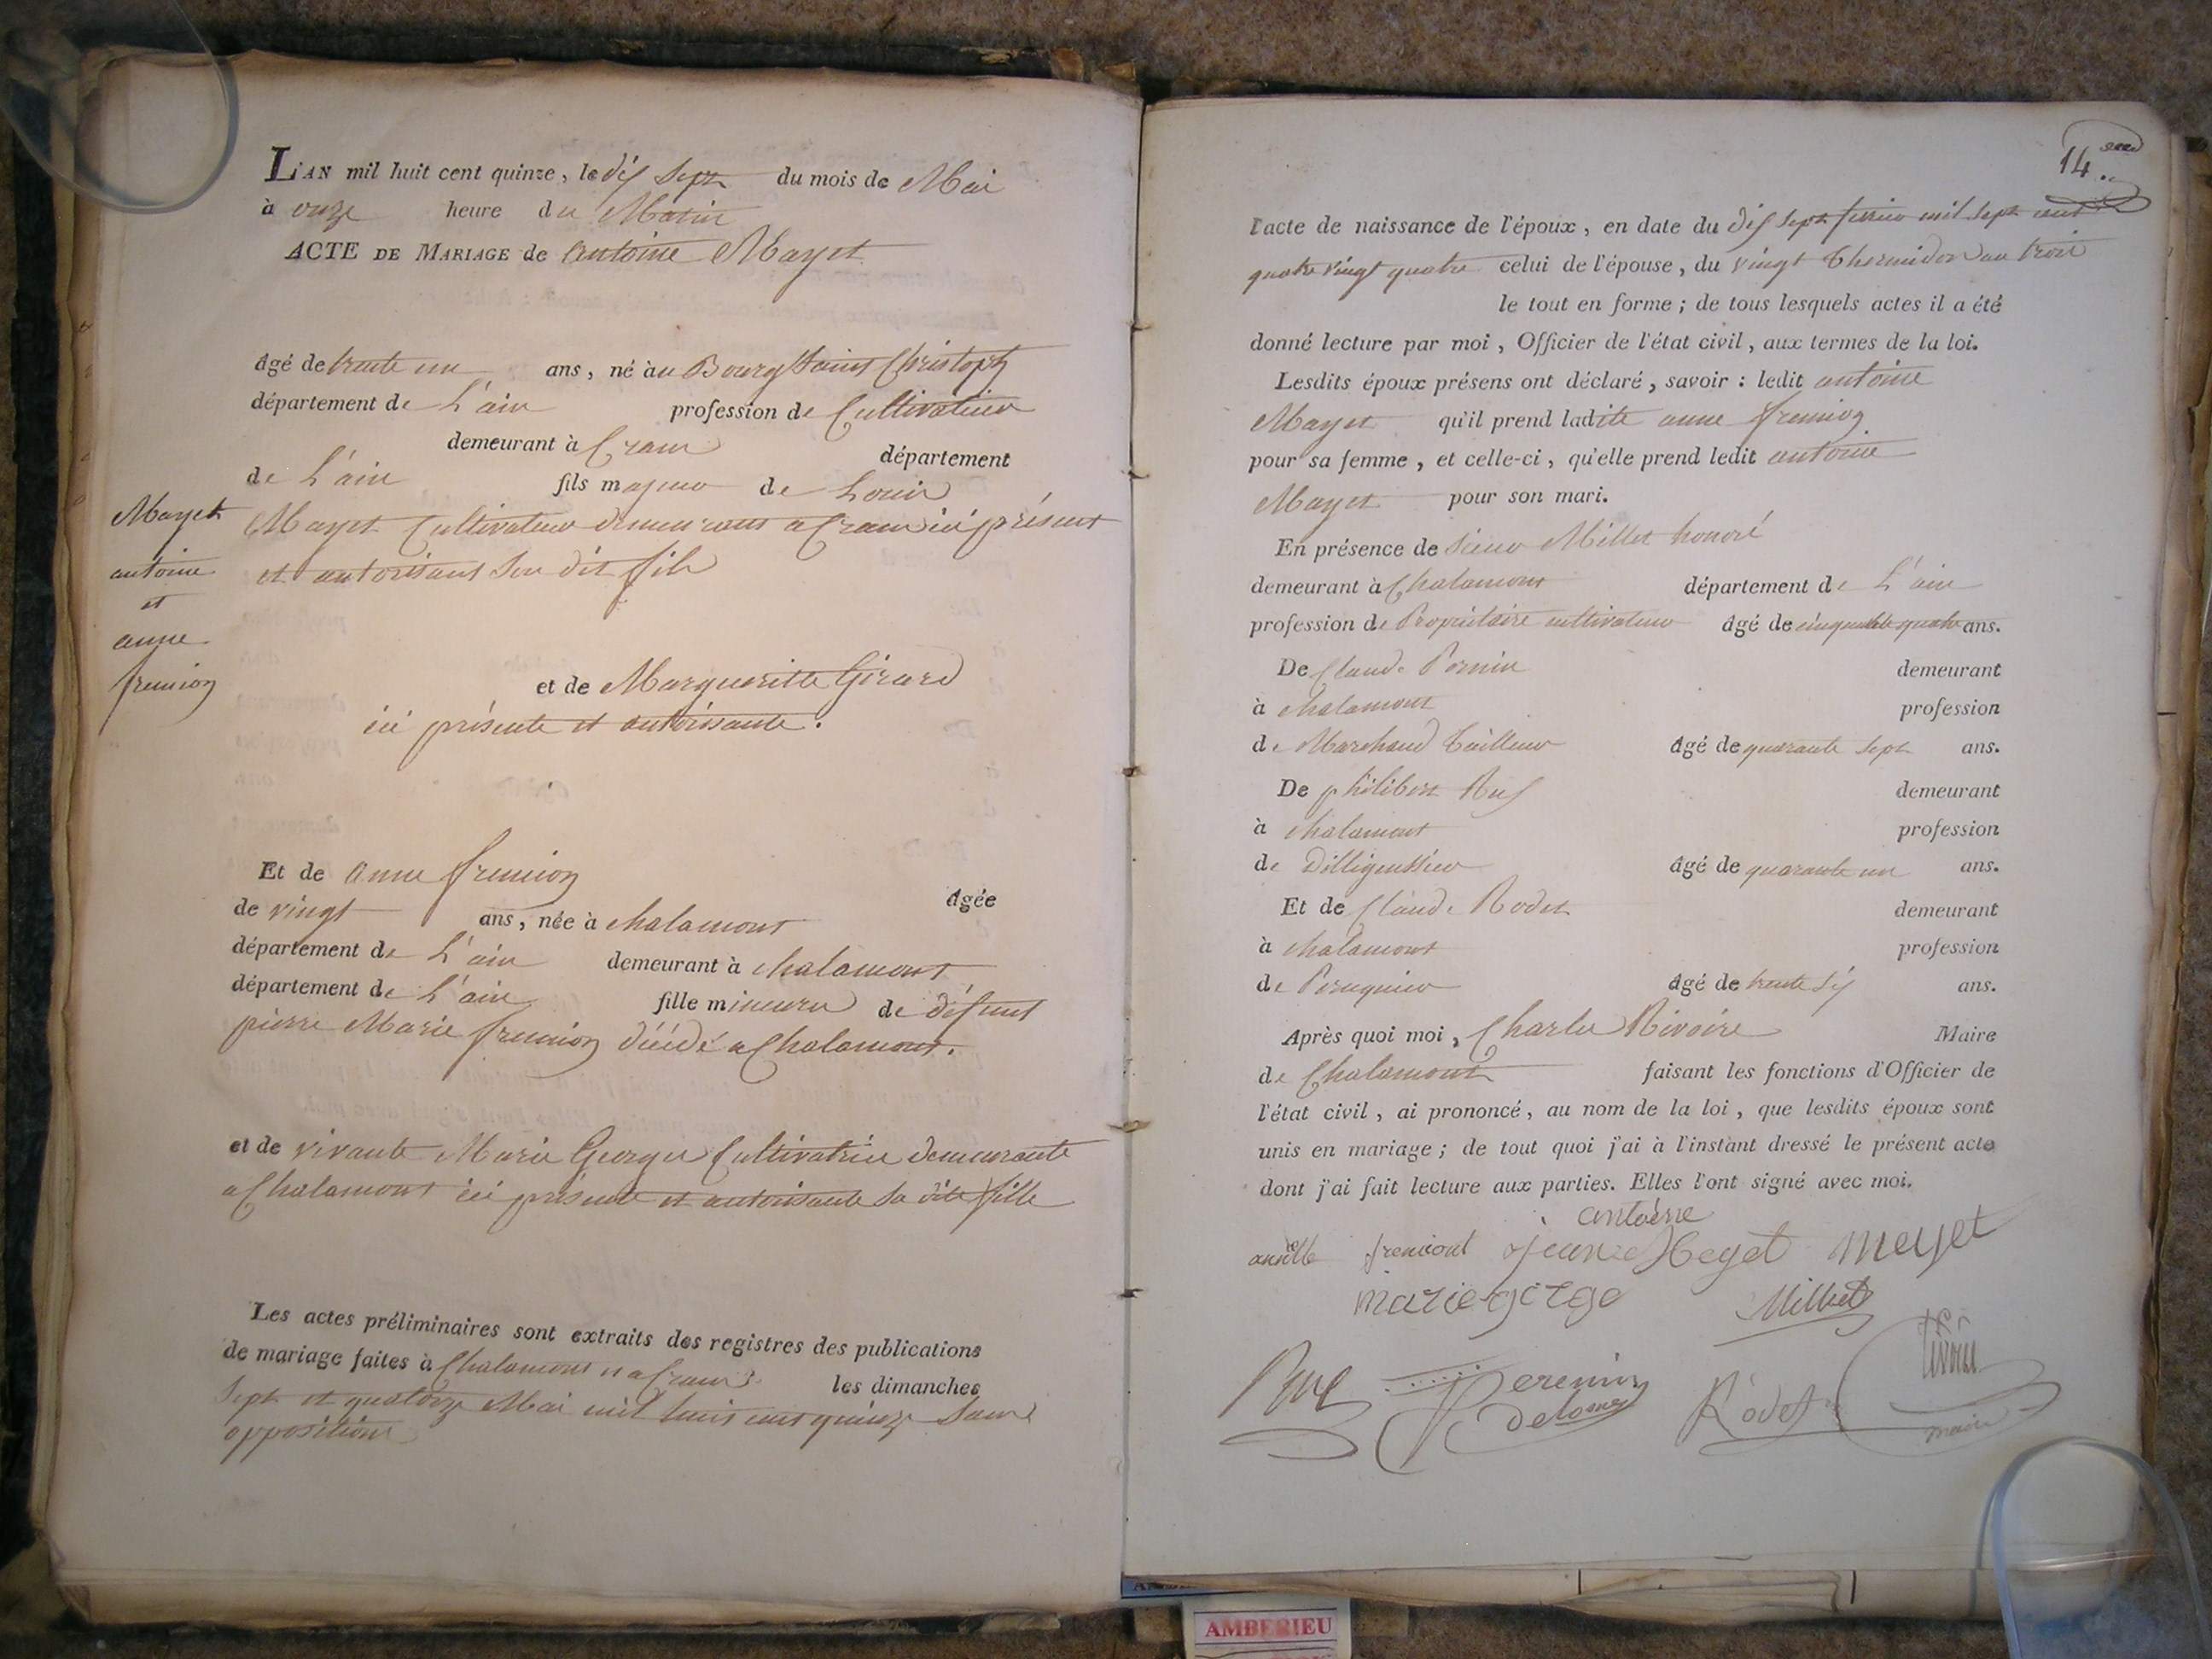 L'AN mil huit cent quinze, le dix sept du mois de Mai
à onze heure du Matin
ACTE DE MARIAGE de antoine Mayet
âgé de trente un ans, né au Bourg Saint Christoph
département de L'ain profession de Cultivateur
demeurant à Crans département
de L'ain fils majeur de Louis
Mayet Cultivateur demeurant a Crans ici présent
et autorisant Son dit fils
Mayet
antoine
et
anne
fremion
et de Margueritte Girard
ici présente et autorisante.
Et de anne fremion âgée
de vingt ans, née à chalamont
département de L'ain demeurant à chalamont
département de L'ain fille mineure de défunt
pierre Marie fremion décédé a Chalamont.
et de vivante Marie George Cultivatrice demeurante
a Chalamont ici présente et autorisante sa dite fille
Les actes préliminaires sont extraits des registres des publications
de mariage faites à Chalamont et a Crans les dimanches
Sept et quatorze Mai mil huit cent quinze Sans
opposition
14
l'acte de naissance de l'époux, en date du dix sept fevrier mil sept cent
quatre vingt quatre celui de l'épouse, du vingt Thermidor an trois
le tout en forme; de tous lesquels actes il a été
donné lecture par moi, Officier de l'état civil, aux termes de la loi.
Lesdits époux présens ont déclaré, savoir : ledit antoine
Mayet qu'il prend ladite anne fremion
pour sa femme, et celle-ci, qu'elle prend ledit antoine
Mayet pour son mari.
En présence de Sieur Millet honoré
demeurant à Chalamont département de L'ain
profession de Propriétaire cultivateur âgé de cinquante quatre ans.
De Claude Pernin demeurant
à chalamont profession
de Marchand Tailleur âgé de quarante sept ans.
De philibert Ruf demeurant
à chalamont profession
de âgé de quarante un ans.
Et de Claude Rodet demeurant
à chalamont profession
de Peruquier âgé de trente Six ans.
Après quoi moi, Charles Rivoire Maire
de Chalamont faisant les fonctions d'Officier de
l'état civil, ai prononcé, au nom de la loi, que lesdits époux sont
unis en mariage; de tout quoi j'ai à l'instant dressé le présent acte
dont j'ai fait lecture aux parties. Elles l'ont signé avec moi.
antoine
fremiont Meyet
marie gorge Millet
Rodet
maire
AMBERIEU